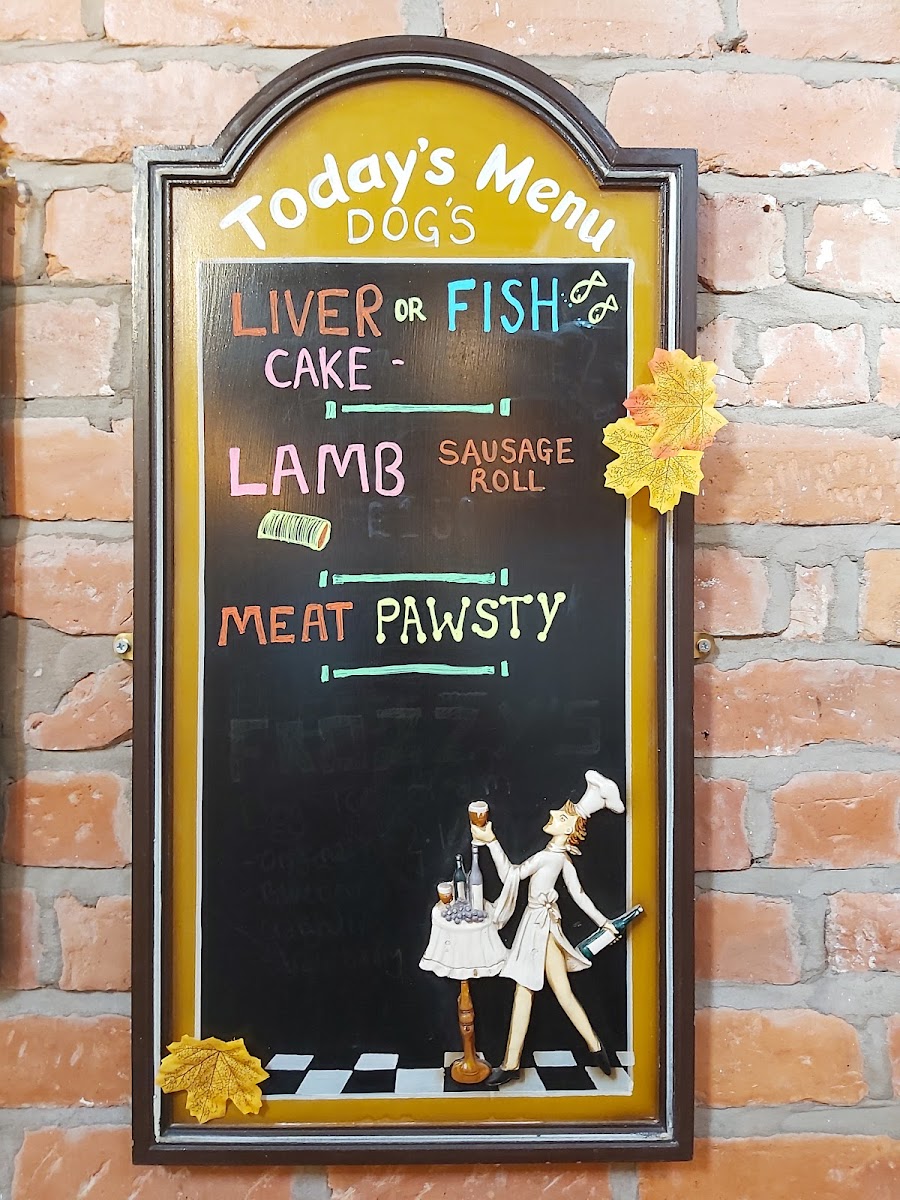 Today's Menu
DOG'S
LIVER OR FISH
CAKE -
LAMB SAUSAGE
ROLL
MEAT PAWSTY